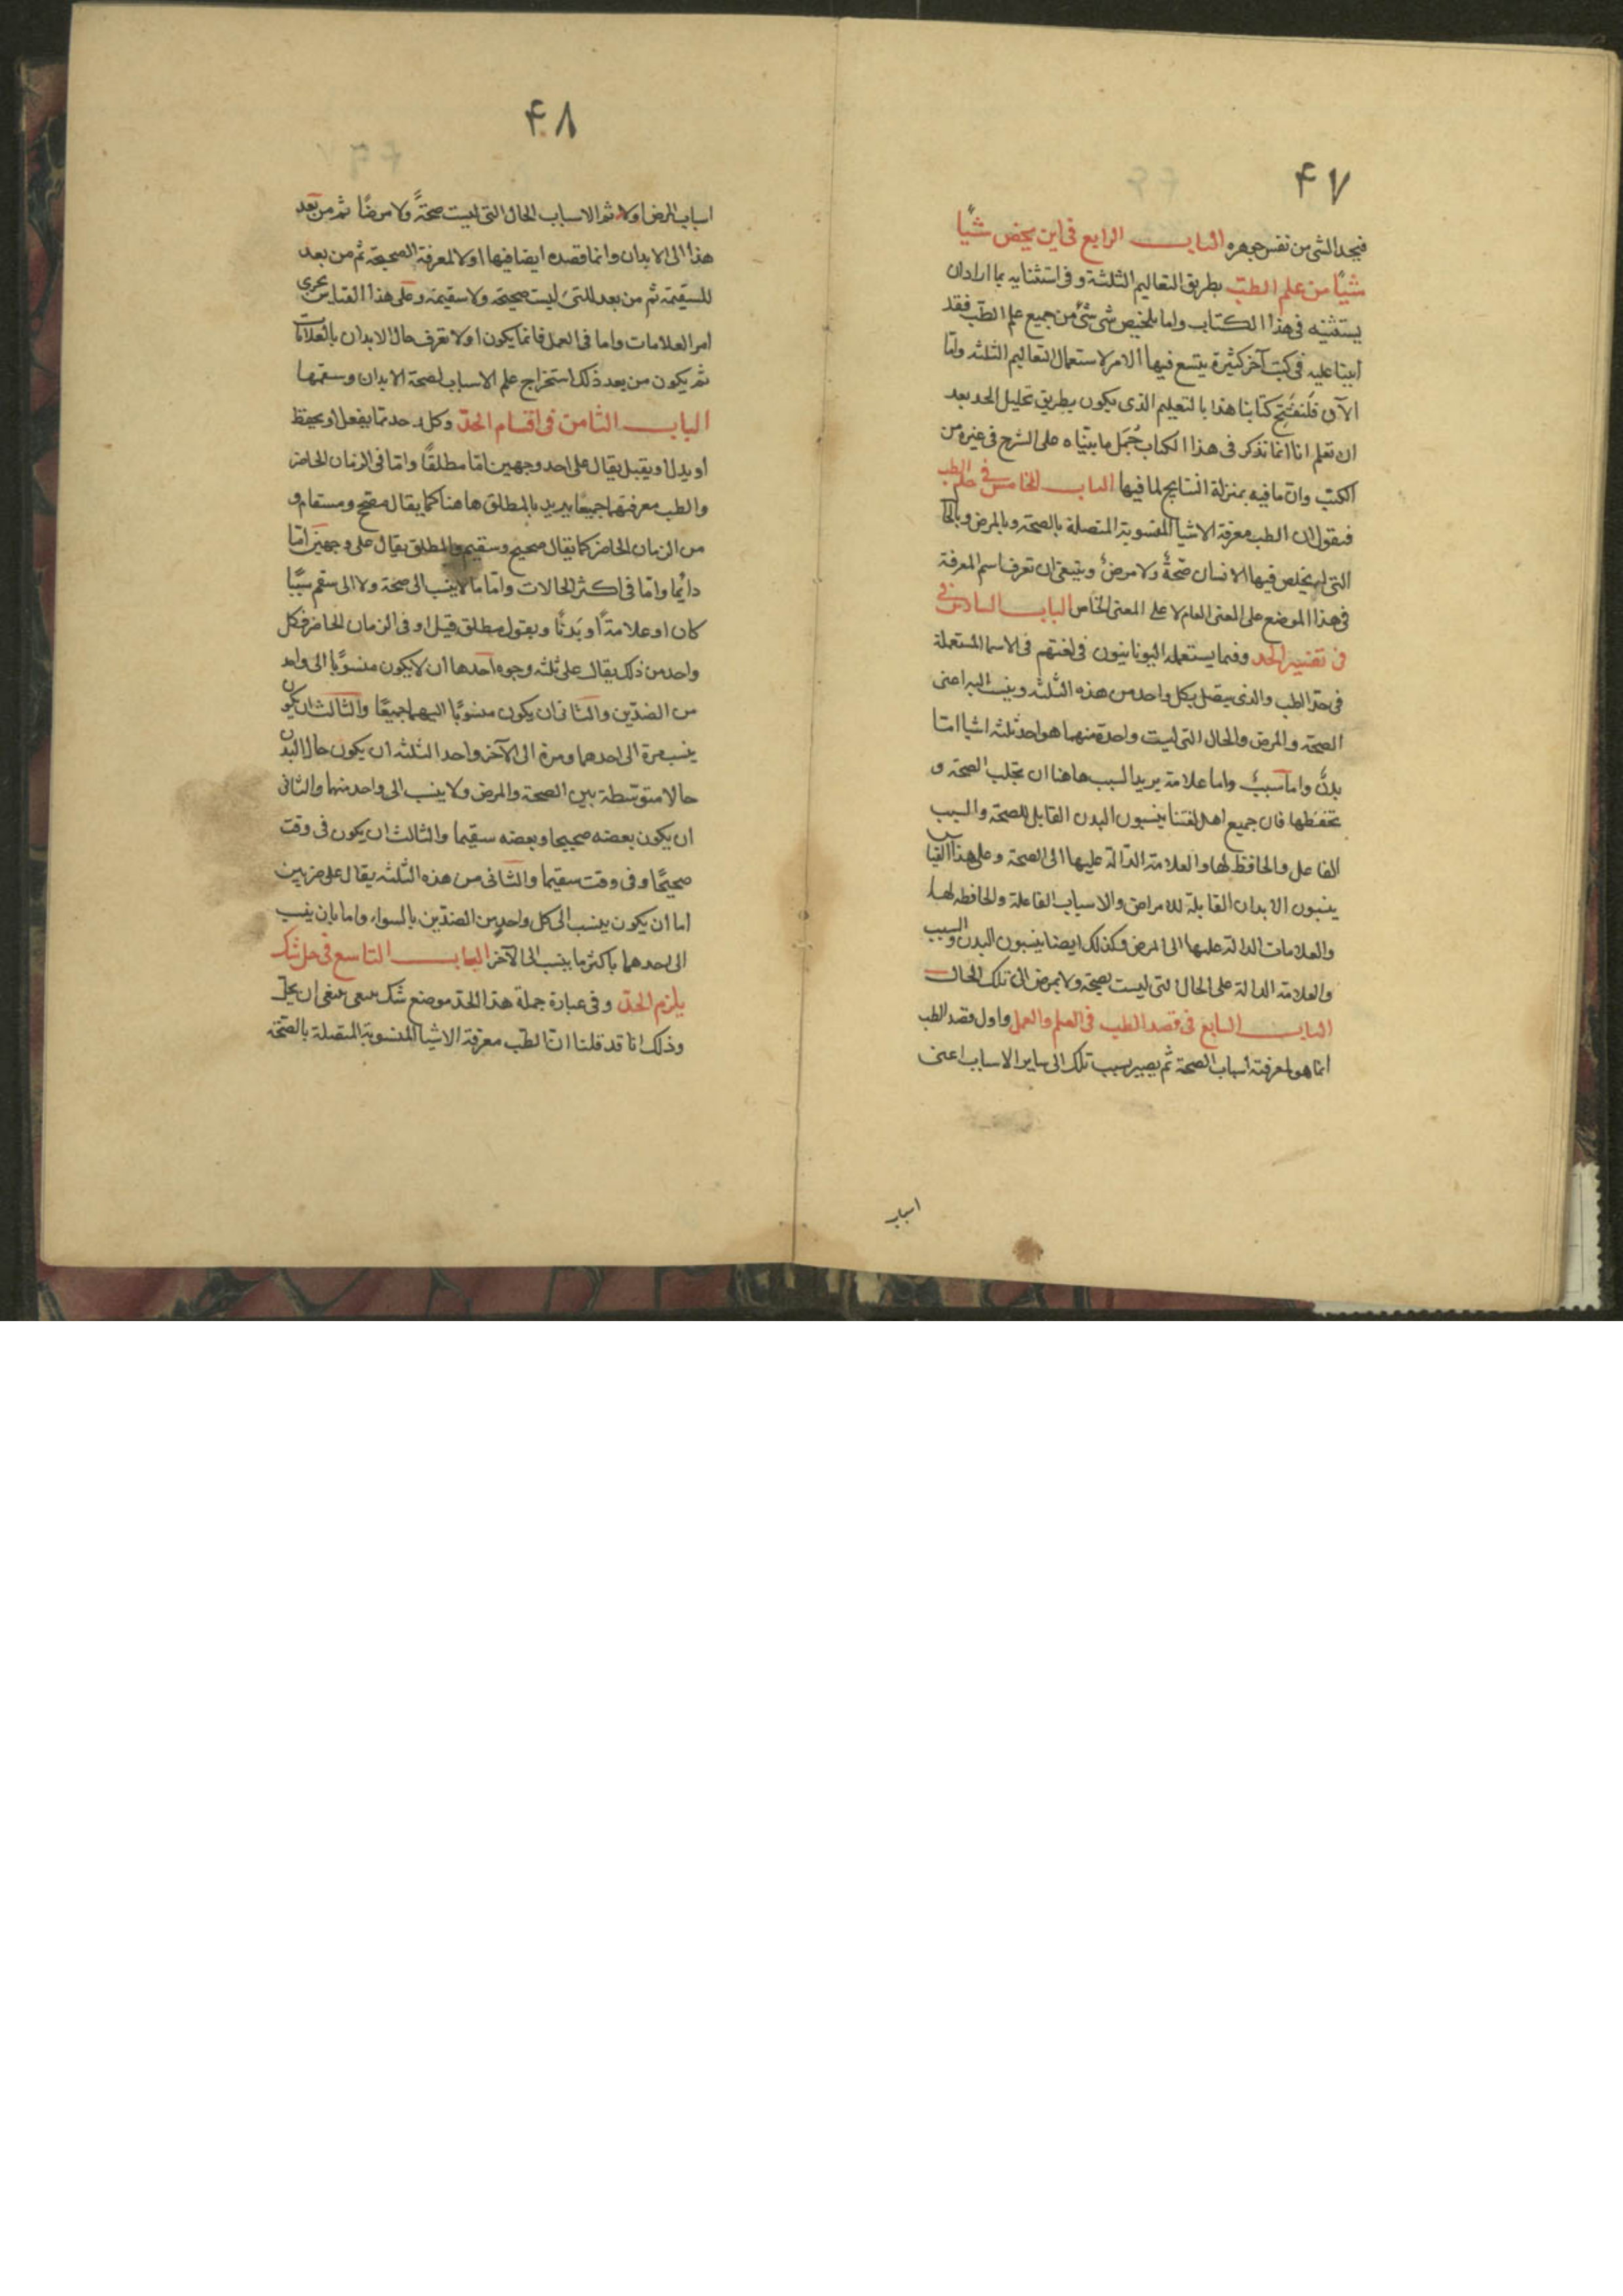 ۴۷
فيجد الشى من نفس جوهره الباب الرابع فى اين يخص شيئًا
شيئًا من علم الطب بطريق التعاليم الثلثة وفى استثنايه بما اراد ان
يستثنيه فى هذا الكتاب واما تلخيص شى شئ من جميع علم الطب فقد
اتينا عليه فى كتب آخر كثيرة يتسع فيها الامر لاستعمال التعاليم الثلثه واما
الآن فلنفتح كتابنا هذا بالتعليم الذى يكون بطريق تحليل الحد بعد
ان تعلم انا انما نذكر فى هذا الكتاب جُمَل ما بيّناه على الشرح فى غيره من
الكتب وان ما فيه بمنزلة النتايج لما فيها الباب الخامس فى علم الطب
فنقول ان الطب معرفة الاشيا المنسوبة المتصلة بالصحة وبالمرض وبالحال
التى لم يخلص فيها الانسان صحةٌ ولا مرضٌ وينبغى ان تعرف اسم المعرفة
فى هذا الموضع على المعنى العام لا على المعنى الخاص الباب السادس فى
فى تفسير الحد وفيما يستعمله اليونانيون فى لغتهم فى الاسما المستعملة
فى حد الطب والذى يتصل بكل واحد من هذه الثلثه وينسب اليه اعنى
الصحة والمرض والحال التى ليست واحدة منهما هو احد ثلثه اشيا امّا
بدنٌ واما سببٌ واما علامة يريد السبب هاهنا ان تجلب الصحة و
تحفظها فان جميع اهل لغتنا ينسبون البدن القابل للصحة والسبب
الفاعل والحافظ لها والعلامة الدالة عليها الى الصحة وعلى هذا القياس
ينسبون الابدان القابلة للامراض والاسباب الفاعلة والحافظه لها
والعلامات الدالة عليها الى المرض وكذلك ايضا ينسبون البدن والسبب
والعلامة الدالة على الحال التى ليست بصحة ولا بمرض الى تلك الحال
الباب السابع فى قصد الطب فى العلم والعمل واول قصد الطب
انما هو لمعرفة اسباب الصحة ثم يصير بسبب تلك الى ساير الاسباب اعنى
اسباب
۴۸
اسباب المرض اولا ثم الاسباب الحال التى ليست صحةً ولا مرضًا ثم من بعد
هذا الى الابدان وانما قصده ايضا فيها اولا لمعرفة الصحيحة ثم من بعد
للسقيمة ثم من بعد للتى ليست صحيحة ولا سقيمة وعلى هذا القياس يجرى
امر العلامات واما فى العمل فانما يكون اولا تعرف حال الابدان بالعلامات
ثم يكون من بعد ذلك استخراج علم الاسباب لصحة الابدان وسقمها
الباب الثامن فى اقسام الحدّ وكل واحد مما يفعل او يحفظ
او يدل او يقبل يقال على احد وجهين اما مطلقًا واما فى الزمان الحاضر
والطب معرفتهما جميعًا يريد بالمطلق هاهنا كما يقال مصحح ومسقام و
من الزمان الحاضر كما يقال صحيح وسقيم والمطلق يقال على وجهين امّا
دايمًا واما فى اكثر الحالات واما ما لا ينسب الى صحة ولا الى سقم سببًا
كان او علامةً او بَدَنًا وبقول مطلق قيل او فى الزمان الحاضر فكل
واحد من ذلك يقال على ثلثه وجوه احدها ان لا يكون منسوبًا الى واحد
من الضدّين والثانى ان يكون منسوبًا اليهما جميعًا والثالث ان يكون
ينسب مرة الى احدهما ومرة الى الآخر واحد الثلثه ان يكون حال البدن
حالا متوسّطة بين الصحة والمرض ولا ينسب الى واحد منهما والثانى
ان يكون بعضه صحيحا وبعضه سقيما والثالث ان يكون فى وقت
صحيحًا وفى وقت سقيما والثانى من هذه الثلثه يقال على ضربين
اما ان يكون ينسب الى كل واحدٍ من الضدّين بالسواء واما بان ينسب
الى احدهما باكثر ما ينسب الى الآخر الباب التاسع فى حل شك
يلزم الحدّ وفى عبارة جملة هذا الحدّ موضع شك ينبغى ان يحل
وذلك انا قد قلنا انّ الطب معرفة الاشيا المنسوبة المتصلة بالصحّة